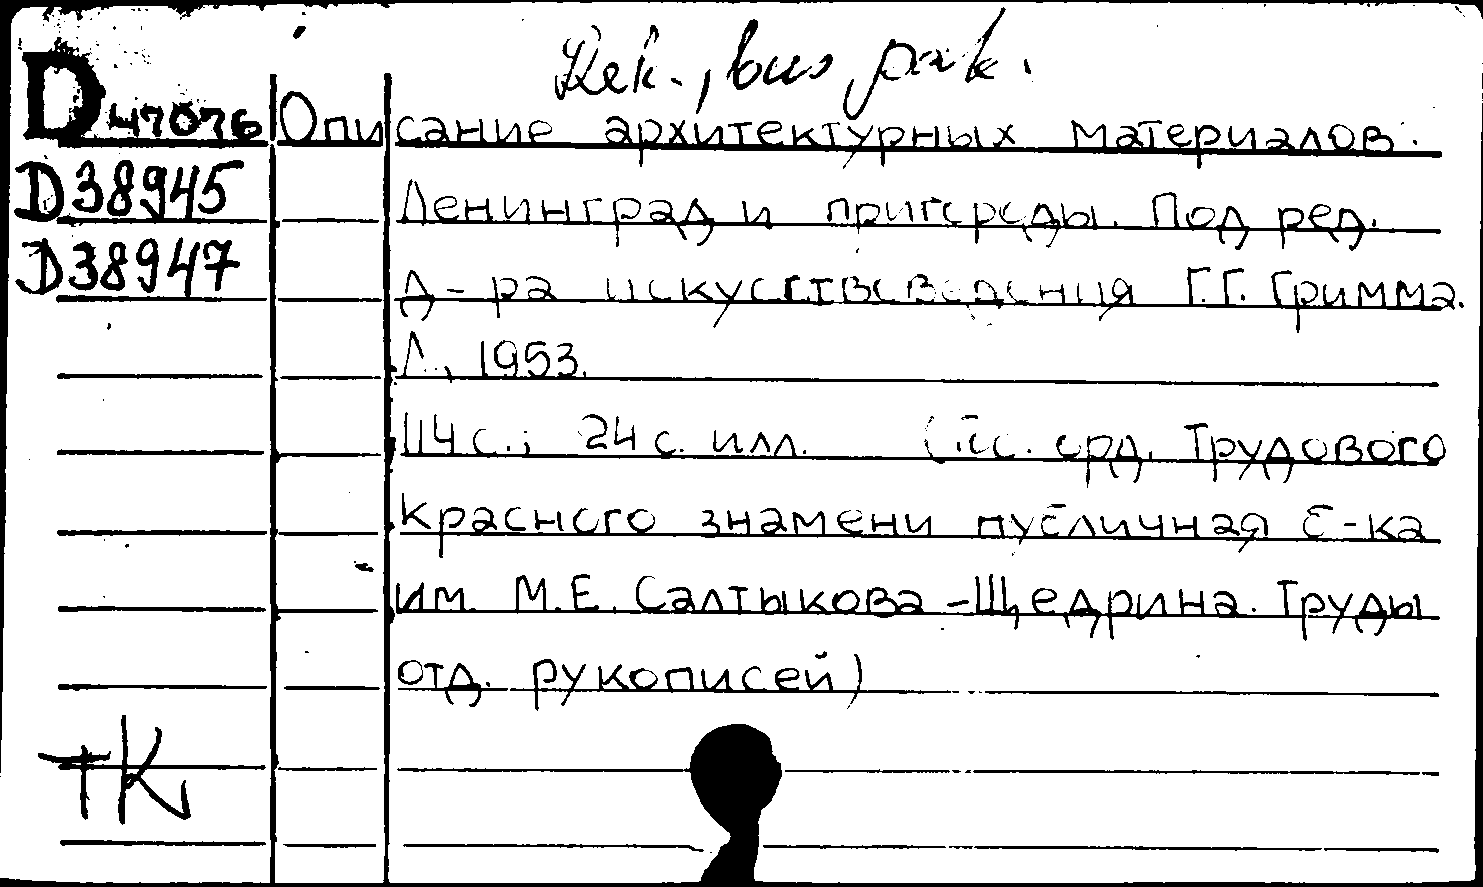 D 47076 Описание архитектурных материалов.
D38945 Ленинград и пригороды. Под ред.
D38947 д-ра искусствоведения Г.Г. Гримма.
Л., 1953.
114 с.; 24 с. илл. (Гос. орд. Трудового
красного знамени публичная б-ка
им. М.Е. Салтыкова-Щедрина. Труды
отд. рукописей)
тК